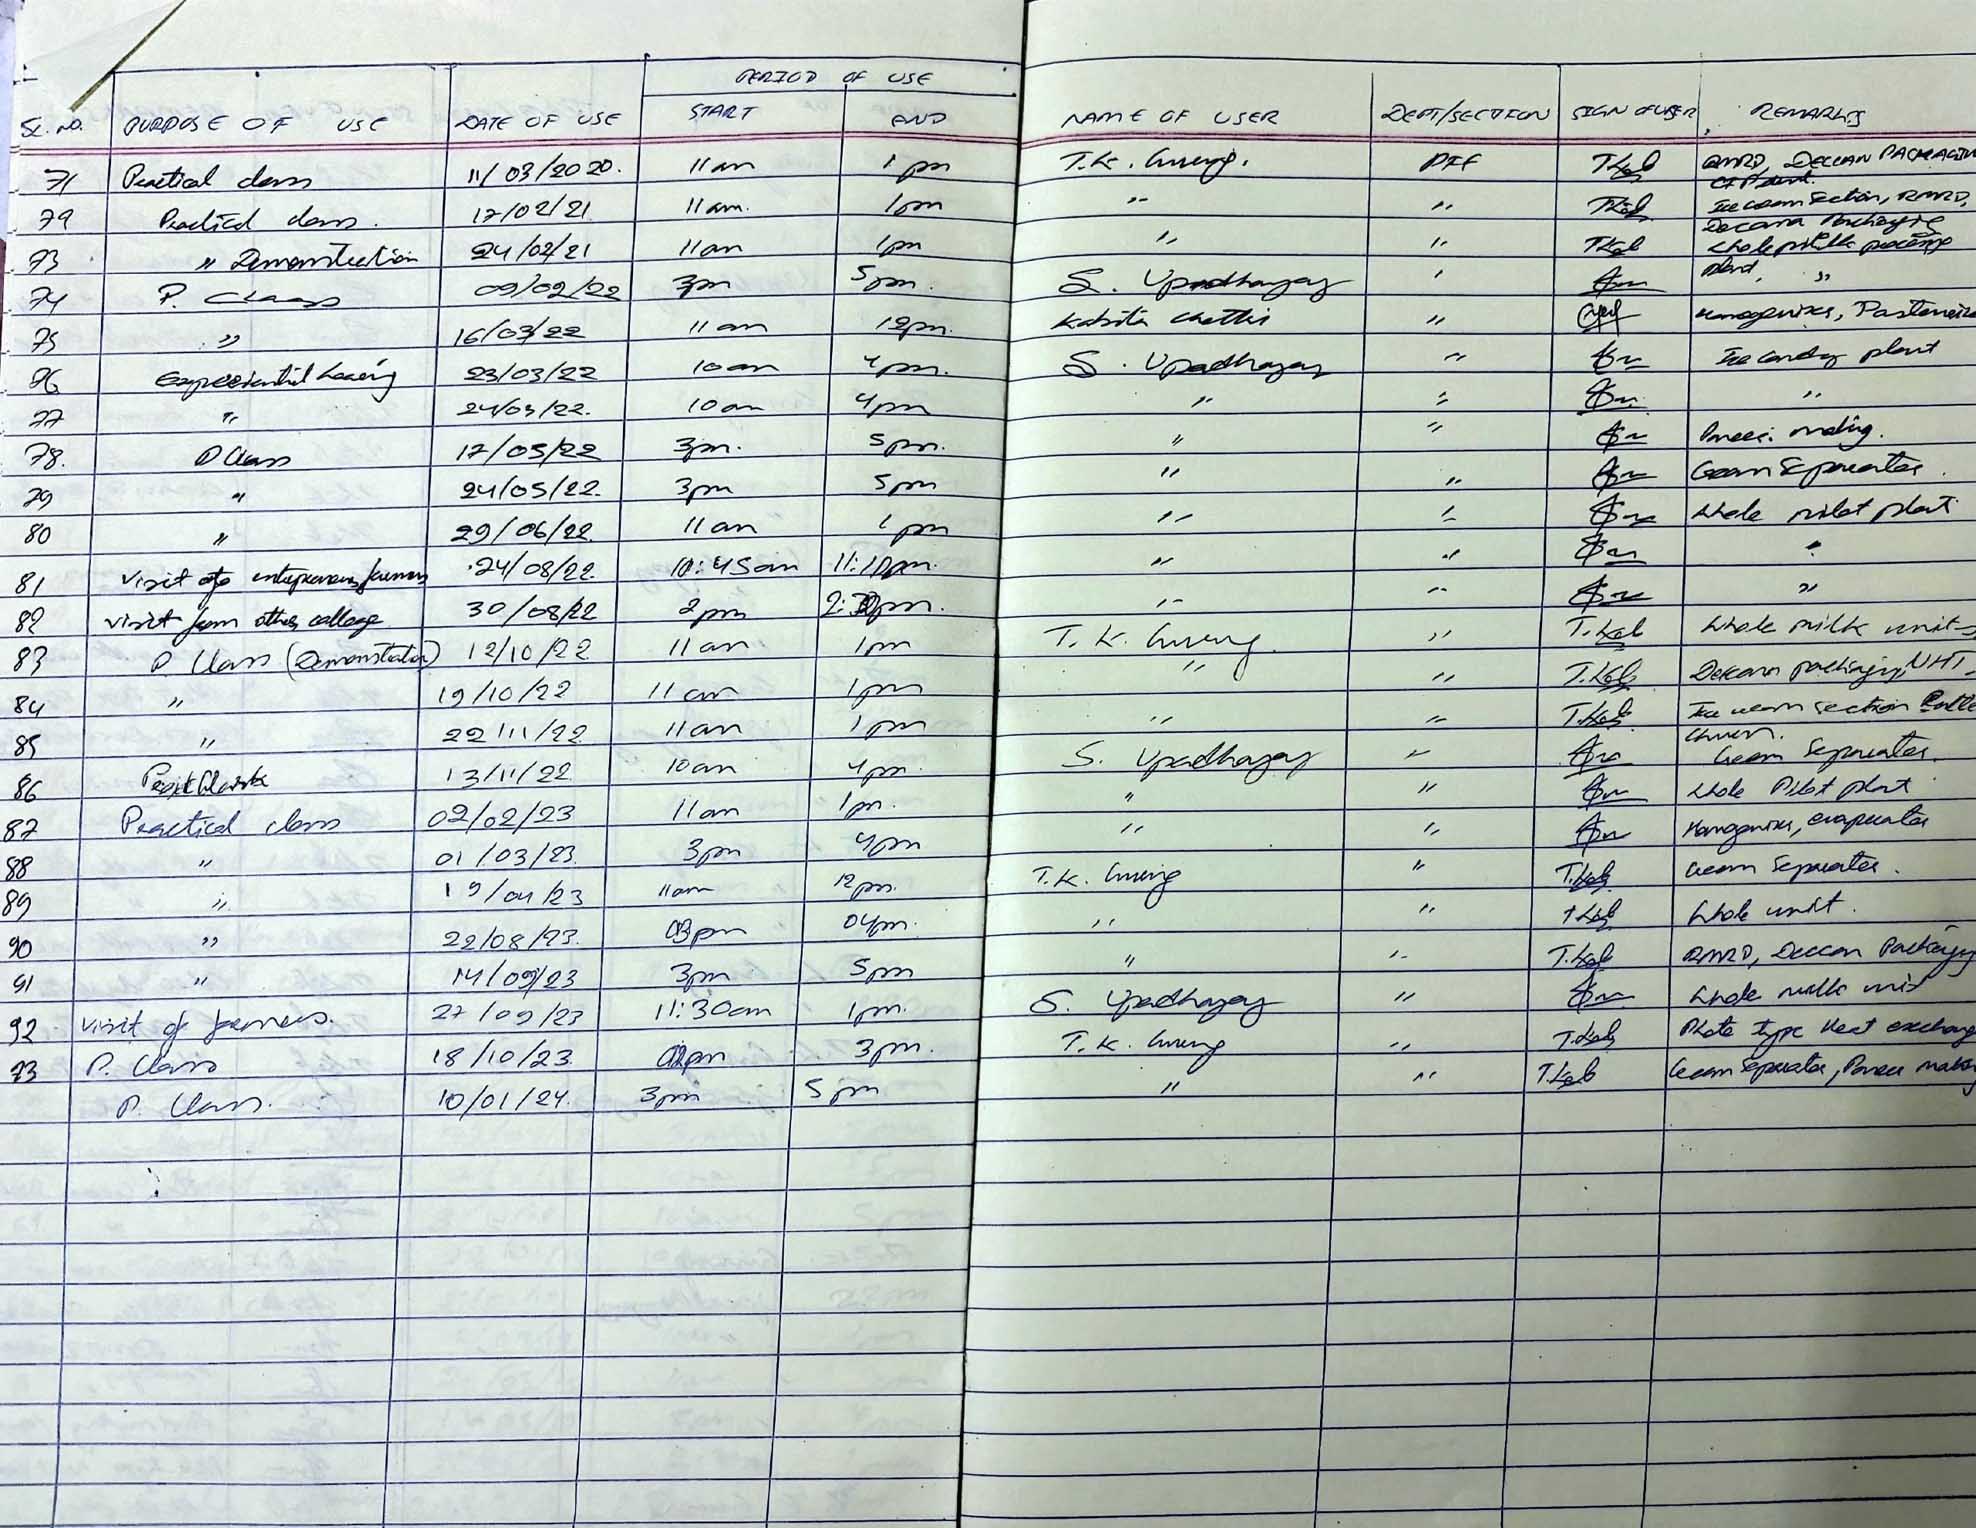 PERIOD OF USE
SL. NO. PURPOSE OF USE DATE OF USE START END NAME OF USER DEPT/SECTION SIGN OF USER REMARKS
71 Practical class 11/03/2020. 11am 1pm T.K. PFF RMRD, DECCAN PACKAGING
72 Practical class. 17/02/21 11am. 1pm " " Ice cream Section, RMRD,
Deccan Packaging
73 " Demonstration 24/02/21 11am 1pm " " Whole milk processing
plant, "
74 P. Class 09/02/22 3pm 5pm. S. Upadhayay "
75 " 16/03/22 11am 12pm. Kabita Chettri " Homogeniser,
76 Experiential 23/03/22 10am 4pm. S. Upadhayay " Ice candy plant
77 " 24/03/22. 10am 4pm " " "
78. P Class 17/05/22 3pm. 5pm. " " Paneer making.
79 " 24/05/22. 3pm 5pm " " Cream Separator.
80 " 29/06/22. 11am 1pm " " Whole pilot plant
81 visit of 24/08/22. " " "
82 visit from other college 30/08/22 2pm " " "
83 P. Class (Demonstration) 12/10/22 11am 1pm T. K. " Whole milk unit
84 " 19/10/22 11am 1pm " " Deccan packaging, UHT
85 " 22/11/22 11am 1pm " " Ice cream section
churn.
86 13/11/22 10am 4pm. S. Upadhayay " Cream Separator.
87 Practical class 02/02/23 11am 1pm. " " Whole Pilot plant
88 " 01/03/23. 3pm 4pm " " Homogeniser, evaporator
89 " 11am 12pm. T.K. " Cream Separator.
90 " 22/08/23. 03pm 04pm. " " Whole unit.
91 " 14/09/23 3pm 5pm " " RMRD, Deccan Packaging
92 visit of farmers. 27/09/23 11:30am 1pm. S. Upadhayay " Whole milk unit
93 P. Class 18/10/23. 02pm 3pm. T. K. " Plate type Heat exchang
P. Class. 10/01/24. 3pm 5pm " " Cream Separator, Paneer making